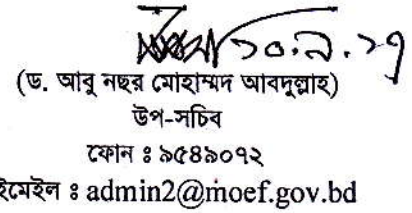 ১০.৯.১৭
(ড. আবু নছর মোহাম্মদ আবদুল্লাহ)
উপ-সচিব
ফোন ঃ ৯৫৪৯০৭২
ইমেইল ঃ admin2@moef.gov.bd